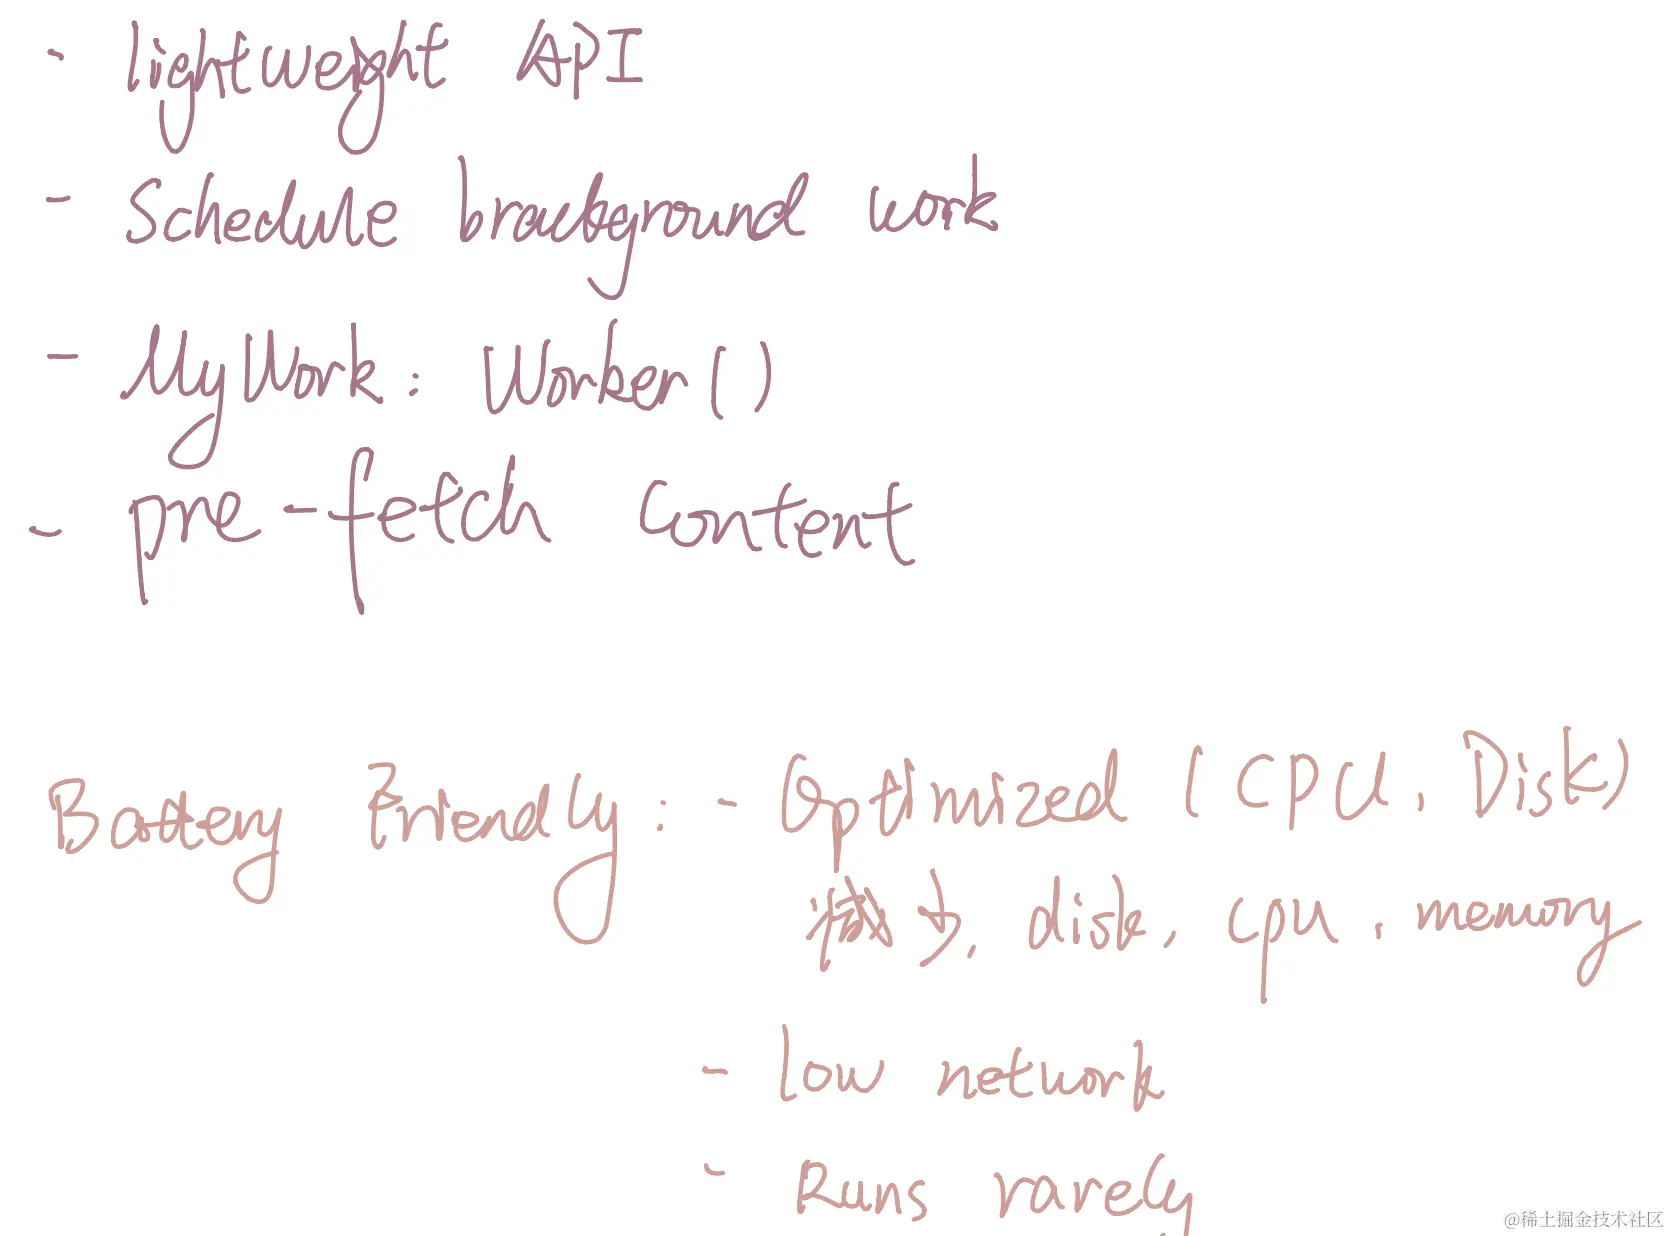 - lightweight API
- Schedule brackground work
- MyWork: Worker()
- pre-fetch content
Battery Friendly: - Optimized (CPU, Disk)
减少, disk, cpu, memory
- low network
- Runs rarely
@稀土掘金技术社区